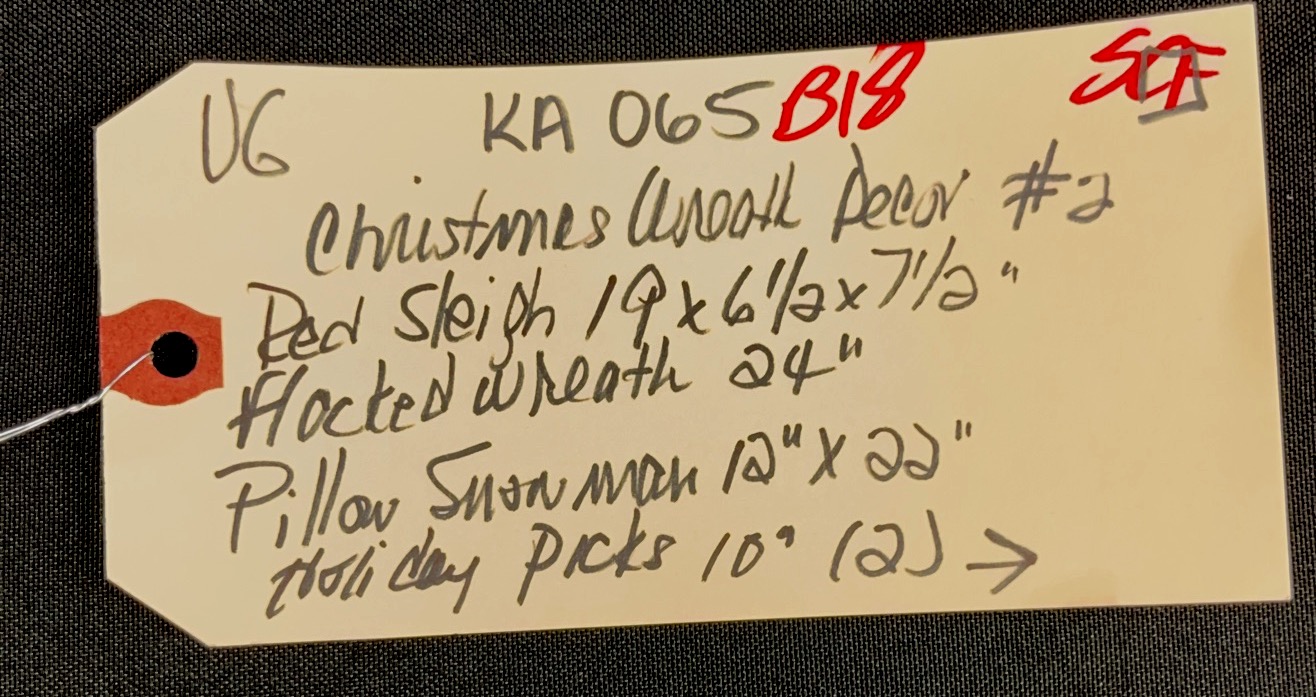 VG KA 065 B18 SCF
Christmas Wreath Decor #2
Red Sleigh 19 x 6 1/2 x 7 1/2"
Flocked Wreath 24"
Pillow Snowman 12" X 22"
Holiday Picks 10" (2) →